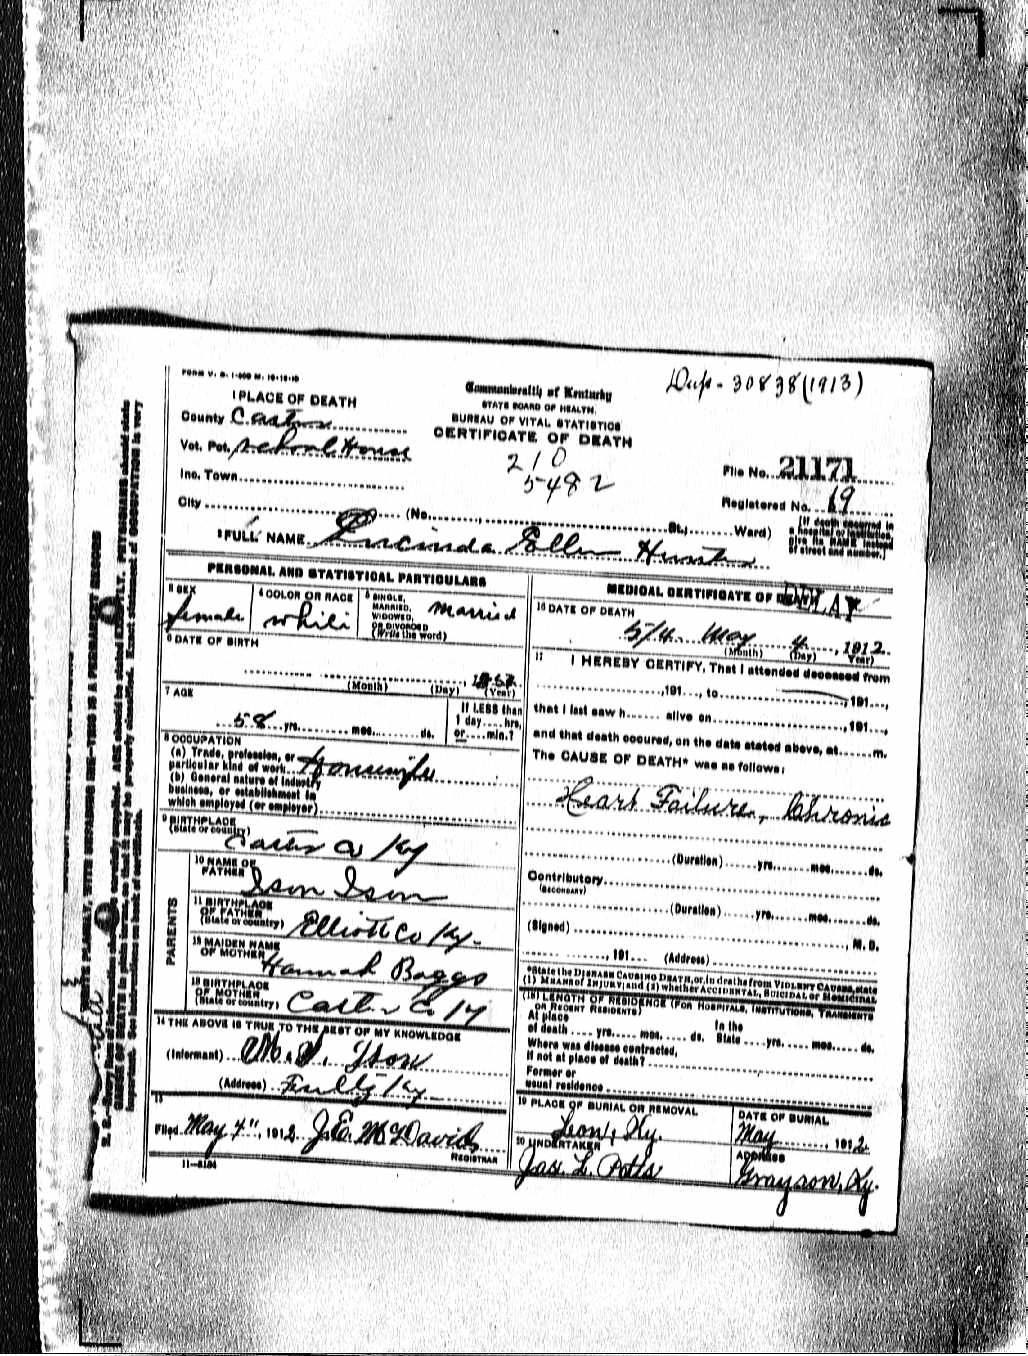 FORM V. S. 1-500 M. 10-15-10
Dup- 30838 (1913)
1 PLACE OF DEATH
County Carter
Vot. Pct. School House
Inc. Town
City (No. , St.; Ward)
Commonwealth of Kentucky
STATE BOARD OF HEALTH.
BUREAU OF VITAL STATISTICS
CERTIFICATE OF DEATH
210
5482
File No. 21171
Registered No. 19
[If death occurred in
a hospital or institution,
give its NAME instead
of street and number.]
2 FULL NAME Lucinda Ellen Hunter
PERSONAL AND STATISTICAL PARTICULARS
3 SEX
female
4 COLOR OR RACE
white
5 SINGLE,
MARRIED,
WIDOWED,
OR DIVORCED
(Write the word)
Married
6 DATE OF BIRTH
(Month) (Day) (Year)
7 AGE
58 yrs. mos. ds.
If LESS than
1 day hrs.
or min.?
8 OCCUPATION
(a) Trade, profession, or
particular kind of work Housewife
(b) General nature of industry
business, or establishment in
which employed (or employer)
9 BIRTHPLACE
(State or country)
Carter Co Ky
PARENTS
10 NAME OF
FATHER Ison Ison
11 BIRTHPLACE
OF FATHER
(State or country) Elliott Co Ky.
12 MAIDEN NAME
OF MOTHER Hannah Boggs
13 BIRTHPLACE
OF MOTHER
(State or country) Carter Co Ky
14 THE ABOVE IS TRUE TO THE BEST OF MY KNOWLEDGE
(Informant) Ison
(Address) Ky.
15
Filed May 4", 1912 J. E. McDavid
REGISTRAR
11-5184
MEDICAL CERTIFICATE OF DEATH
16 DATE OF DEATH
5/4 May 4, 1912
(Month) (Day) Year)
17 I HEREBY CERTIFY, That I attended deceased from
, 191 , to , 191 ,
that I last saw h alive on , 191 ,
and that death occured, on the date stated above, at m.
The CAUSE OF DEATH* was as follows:
Heart Failure, Chronic
(Duration) yrs. mos. ds.
Contributory
(SECONDARY)
(Duration) yrs. mos. ds.
(Signed) , M. D.
, 191 (Address)
*State the DISEASE CAUSING DEATH, or, in deaths from VIOLENT CAUSES, state
(1) MEANS OF INJURY; and (2) whether ACCIDENTAL, SUICIDAL or HOMICIDAL
(18) LENGTH OF RESIDENCE (FOR HOSPITALS, INSTITUTIONS, TRANSIENTS
OR RECENT RESIDENTS)
At place
of death yrs. mos. ds.
In the
State yrs. mos. ds.
Where was disease contracted,
if not at place of death?
Former or
usual residence
19 PLACE OF BURIAL OR REMOVAL
Leon, Ky.
DATE OF BURIAL
May , 1912
20 UNDERTAKER
Jas. L. Potts
ADDRESS
Grayson, Ky.